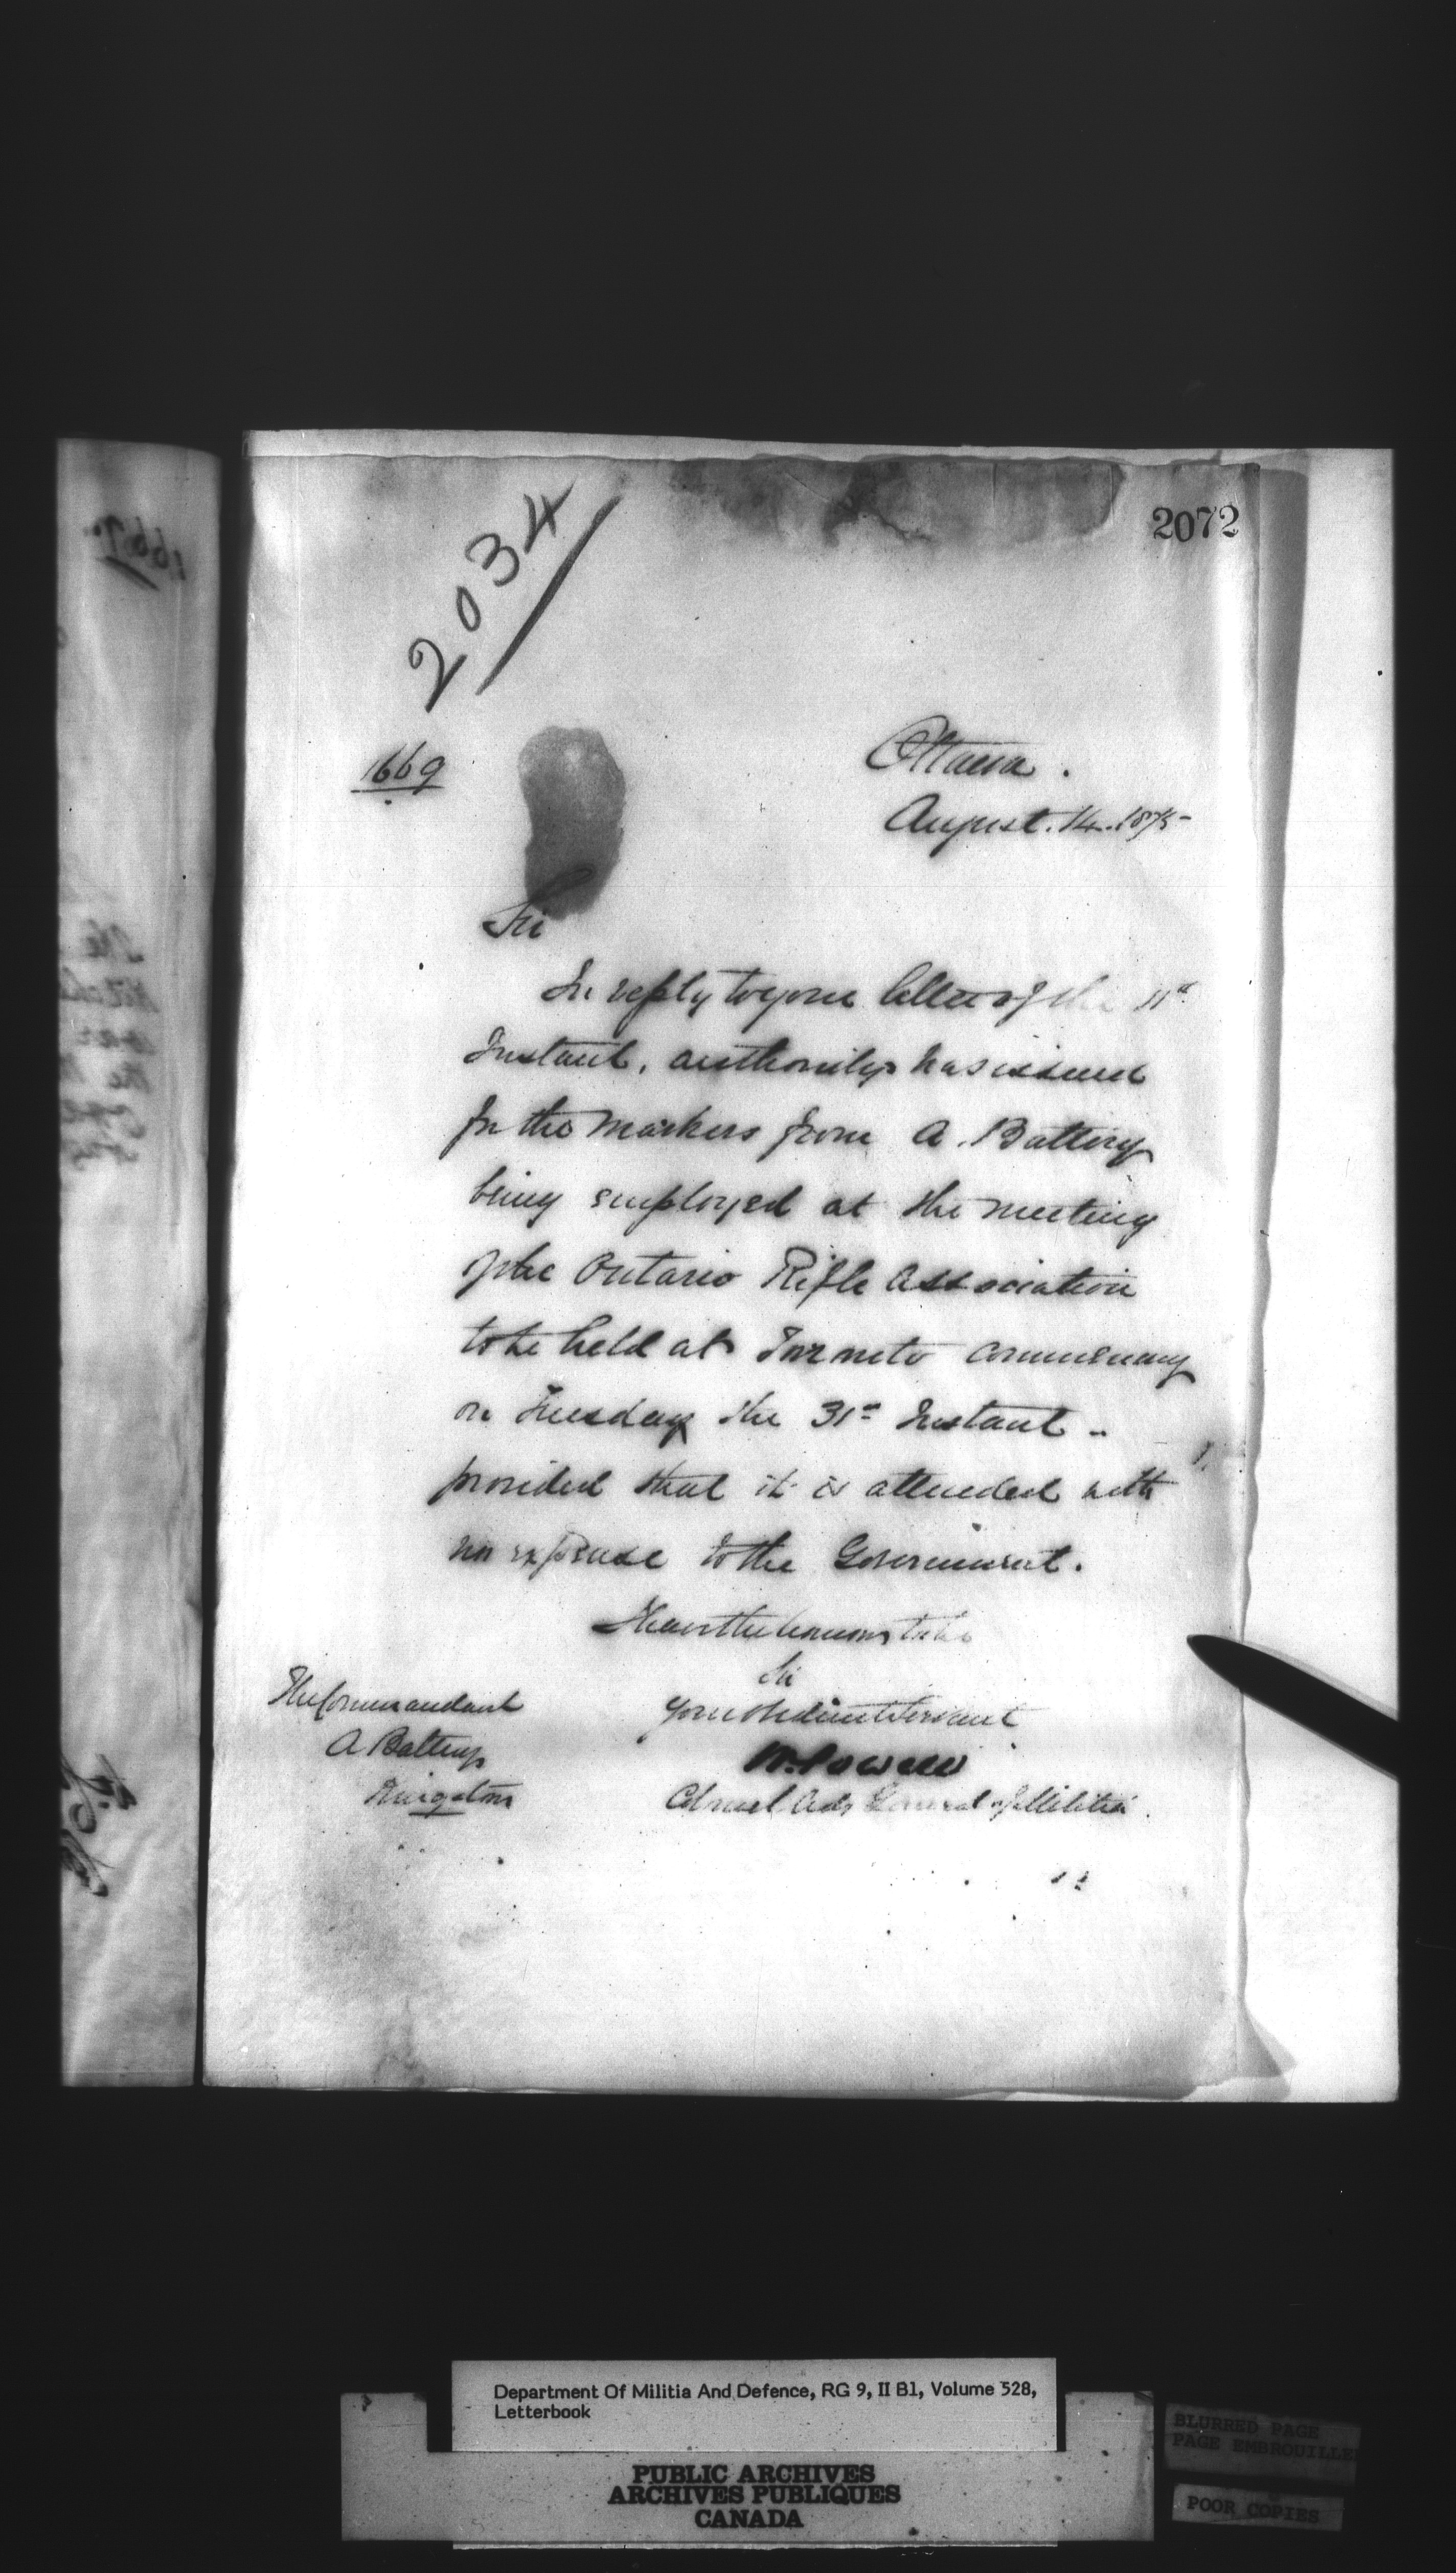 2072
2034
1669
Ottawa.
August. 14. 1875-
Sir
In reply to your letter of the 11th
Instant, authority has issued
for the markers from A. Battery
being employed at the meeting
of the Ontario Rifle Association
to be held at Toronto commencing
on Tuesday the 31st Instant -
provided that it is attended with
no expense to the Government.
I have the honour to be
Sir
Your obedient Servant
W. Powell
Colonel Adj General of Militia.
The Commandant
A Battery
Kingston
Department Of Militia And Defence, RG 9, II B1, Volume 528,
Letterbook
PUBLIC ARCHIVES
ARCHIVES PUBLIQUES
CANADA
BLURRED PAGE
PAGE EMBROUILLEE
POOR COPIES